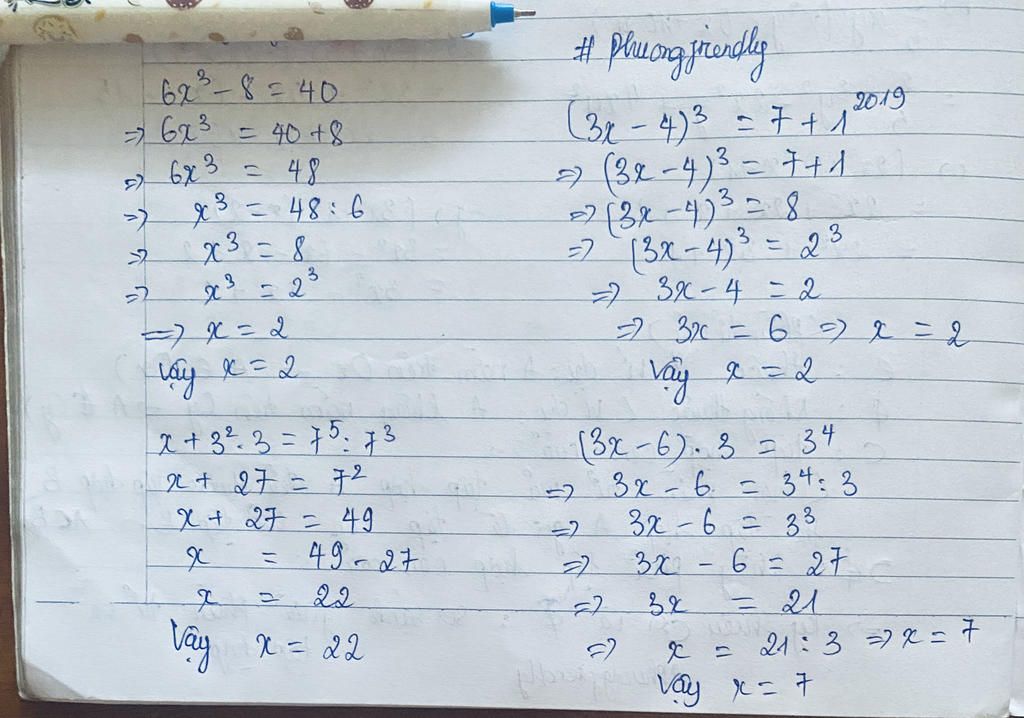 6x³ - 8 = 40
=> 6x³ = 40 + 8
=> 6x³ = 48
=> x³ = 48 : 6
=> x³ = 8
=> x³ = 2³
=> x = 2
Vậy x = 2
x + 3² . 3 = 7⁵ : 7³
x + 27 = 7²
x + 27 = 49
x = 49 - 27
x = 22
Vậy x = 22
# Phuongfriendly
(3x - 4)³ = 7 + 1²⁰¹⁹
=> (3x - 4)³ = 7 + 1
=> (3x - 4)³ = 8
=> (3x - 4)³ = 2³
=> 3x - 4 = 2
=> 3x = 6 => x = 2
Vậy x = 2
(3x - 6) . 3 = 3⁴
=> 3x - 6 = 3⁴ : 3
=> 3x - 6 = 3³
=> 3x - 6 = 27
=> 3x = 21
=> x = 21 : 3 => x = 7
Vậy x = 7